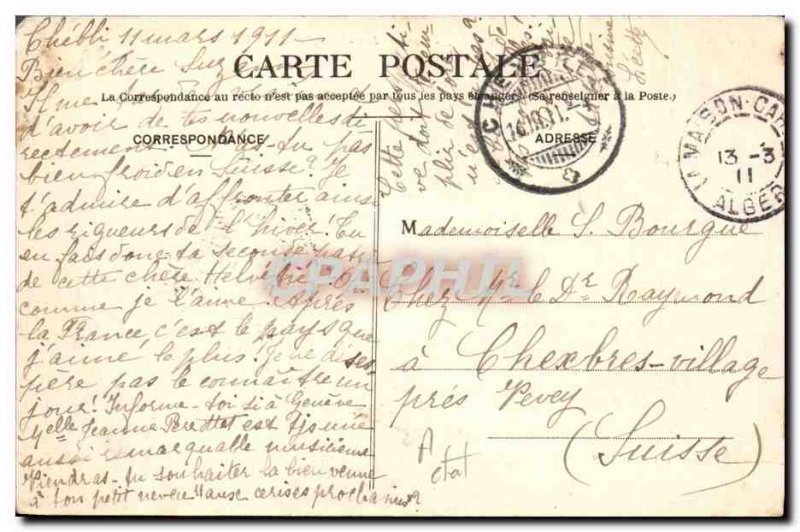 Chébli 11 mars 1911
Bien chère Suz
CARTE POSTALE
La Correspondance au recto n'est pas acceptée par tous les pays étrangers (Se renseigner à la Poste.)
Il me
d'avoir de tes nouvelles
CORRESPONDANCE
rectement. tu pas
bien froid en Suisse? Je
t'admire d'affronter ainsi
les rigueurs de l'hiver! Tu
en fais donc ta seconde patrie
de cette chère Helvétie.
comme je l'aime. Après
la France c'est le pays que
j'aime le plus. Je ne déses
père pas le connaître un
jour! Informe-toi si à Genève
Melle Jeanne Perottet est tjs une
aussi remarquable musicienne
Viendras-tu souhaiter la bienvenue
à ton petit neveu "aux cerises prochaines?
Cette
ADRESSE
LA MAISON-CAR
13 -3
11
ALGER
Mademoiselle S. Bourgue
Chez Mr le Dr Raymond
à Chexbres-village
près Vevey
(Suisse)
A
état
CPAPHIL